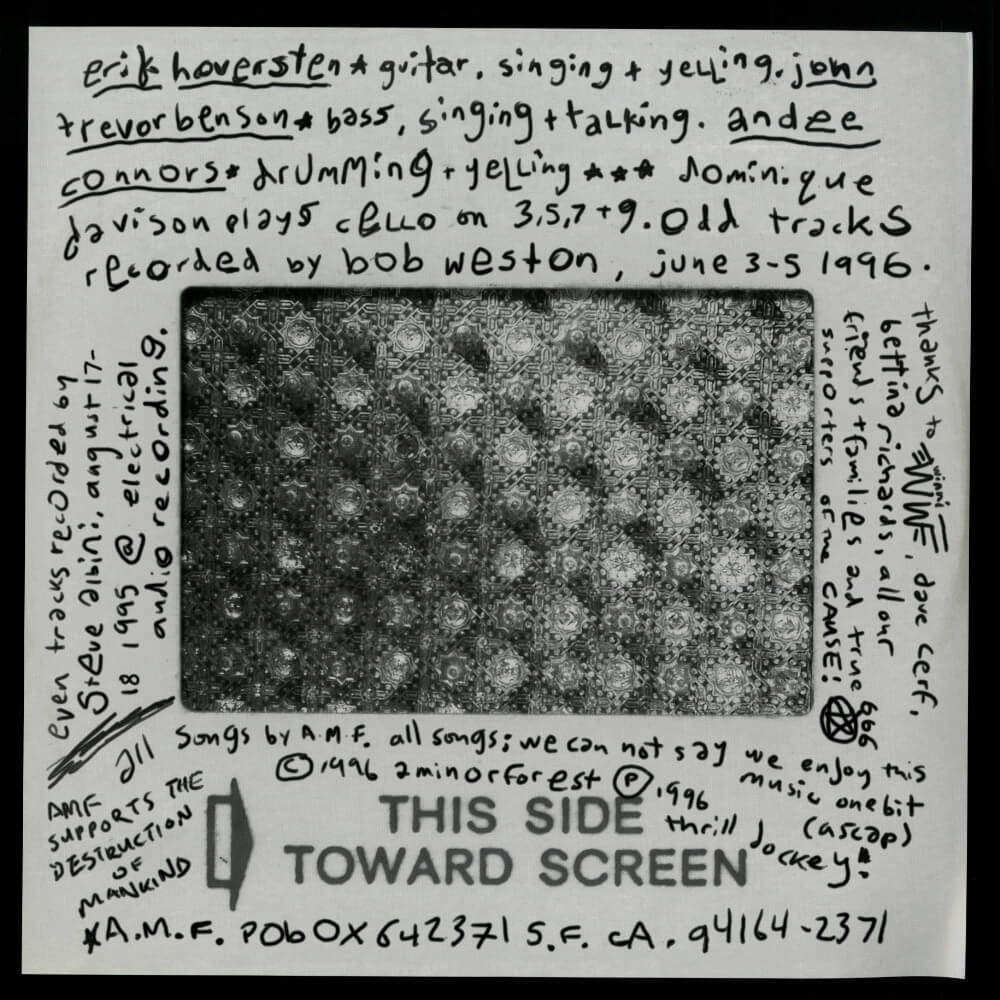 erik hoversten ★ guitar, singing + yelling. john
trevor benson ★ bass, singing + talking. andee
connors ★ drumming + yelling ★★★ dominique
davison plays cello on 3,5,7+9. odd tracks
recorded by bob weston, june 3-5 1996.
even tracks recorded by
steve albini, august 17-
18 1995 @ electrical
audio recording.
thanks to winni WWF, dave cerf,
bettina richards, all our
friends + families and true 666
supporters of the CAUSE!
all songs by A.M.F. all songs; we can not say we enjoy this
music one bit
(ascap)
© 1996 aminorforest ℗ 1996
thrill jockey!
AMF
SUPPORTS THE
DESTRUCTION
OF
MANKIND
THIS SIDE
TOWARD SCREEN
★A.M.F. PObOX 642371 S.F. CA. 94164-2371